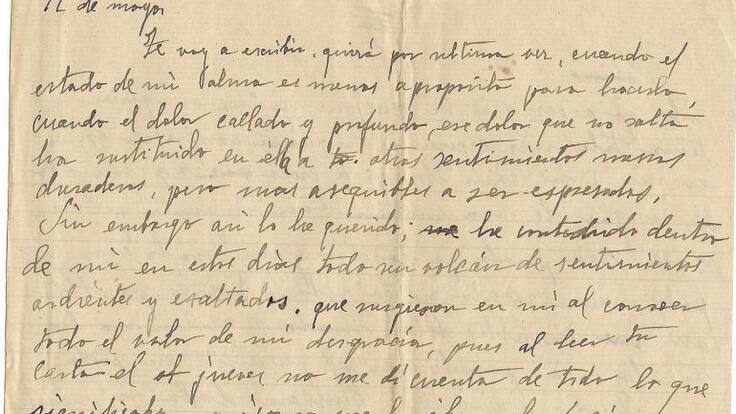 de mayo,
Te voy a escribir, quizá por ultima vez, cuando el
estado de mi alma es menos apropósito para hacerlo,
cuando el dolor callado y profundo, ese dolor que no salta
ha sustituido en ella a otros sentimientos menos
duraderos, pero mas asequibles a ser expresados.
Sin embargo asi lo he querido; he contenido dentro
de mi en estos dias todo un volcán de sentimientos
ardientes y exaltados. que surgieron en mi al conocer
todo el valor de mi desgracia, pues al leer tu
carta el jueves no me di cuenta de todo lo que